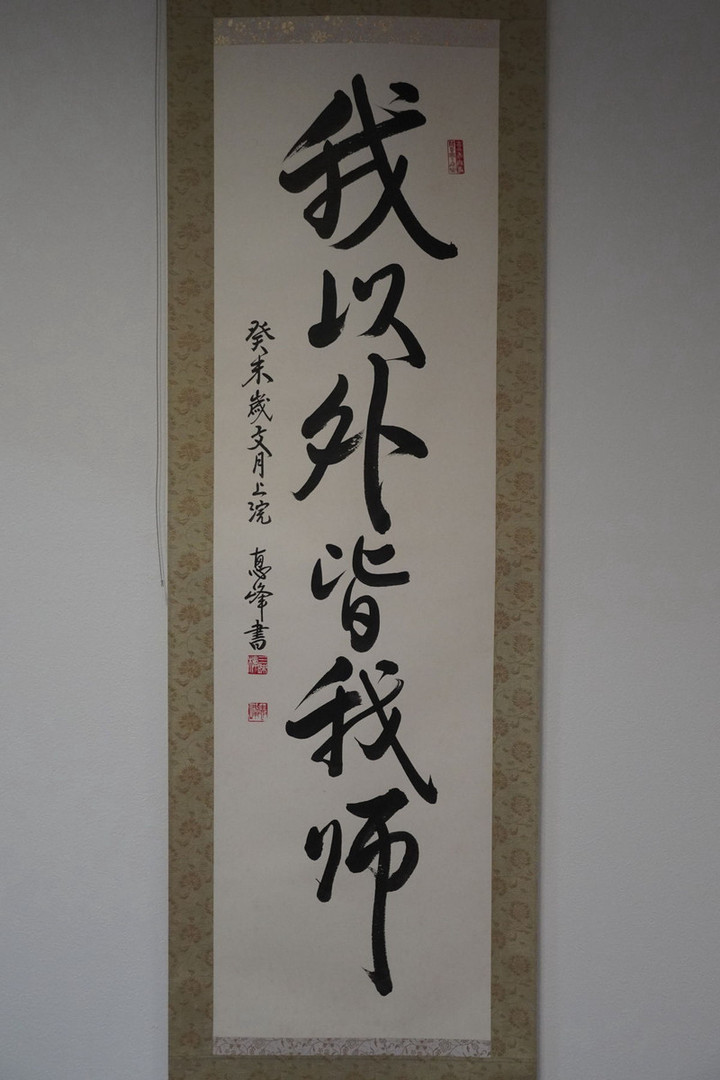 我以外皆我師
癸未歳文月上浣 恵峰書